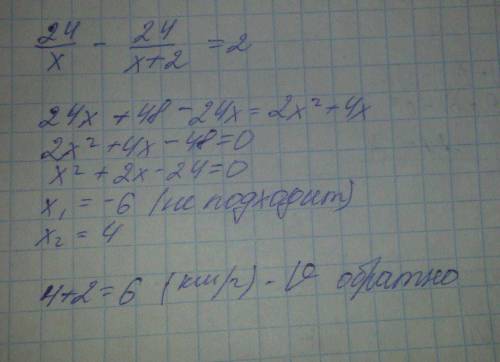 24/x - 24/(x+2) = 2
24x + 48 - 24x = 2x² + 4x
2x² + 4x - 48 = 0
x² + 2x - 24 = 0
x₁ = -6 (не подходит)
x₂ = 4
4+2=6 (км/г) - V обратно